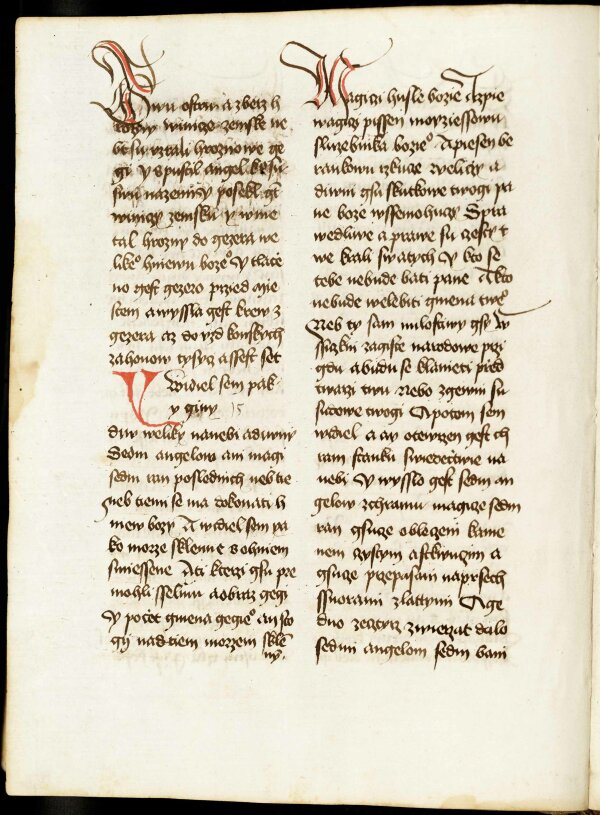 twu ostru a zberz h
rozny winicze zemske ne
bt su vzrali hroznowe ge
gi y spustil angel srp
swu nazemi y posekl gt
winicy zemsku y wme
tal hrozny do gezera we
like° hniewu boze° y tlacze
no gest gezero przed mie
stem a wyssla gest krew z
gezera az do vzd konskych
zahonow tysycz a ssest set
Widiel sem pak
y giny 15
diw weliky nanebi a diwny
Sedm angelow ani magi
sedm ran poslednich neb tie
neb tiemi se ma dokonati h
niew bozy A widiel sem ya
ko morze sklenne s ohniem
smiessene A ti kterzi gsu pre
mohli sselmu a obraz gegi
y poczet gmena gegie° an sto
gij nad tiem morzem skle
ny.
Magicz husle bozie A zpie
wagicz piesen moyziessowu
sluzebnika bozie° A piesen be
rankowu rzkucz Weliczy a
diwni gsu skutkowe twogi pa
ne boze wssemohuczy Spra
wedliwe a prawe su czesty t
we krali swatych y kto se
tebe nebude bati pane A kto
nebude welebiti gmena twe°
Neb ty sam milostiwy gsy W
ssiczkni zagiste narodowe przi
gdu a budu se klanieti przed
twarzi twu Nebo zgewni su
sudowe twogi A potom sem
widiel a ay otewrzen gest ch
ram stanku swiedectwie na
nebi y wysslo gest sedm an
gelow z chramu magicze sedm
ran gsuce obleczeni kame
nem czystym a stkwuczim a
gsucze przepasani na prsech
ssnorami zlattymi A ge
dno ze cztyrz zwierzat dalo
sedmi angelom sedm bani